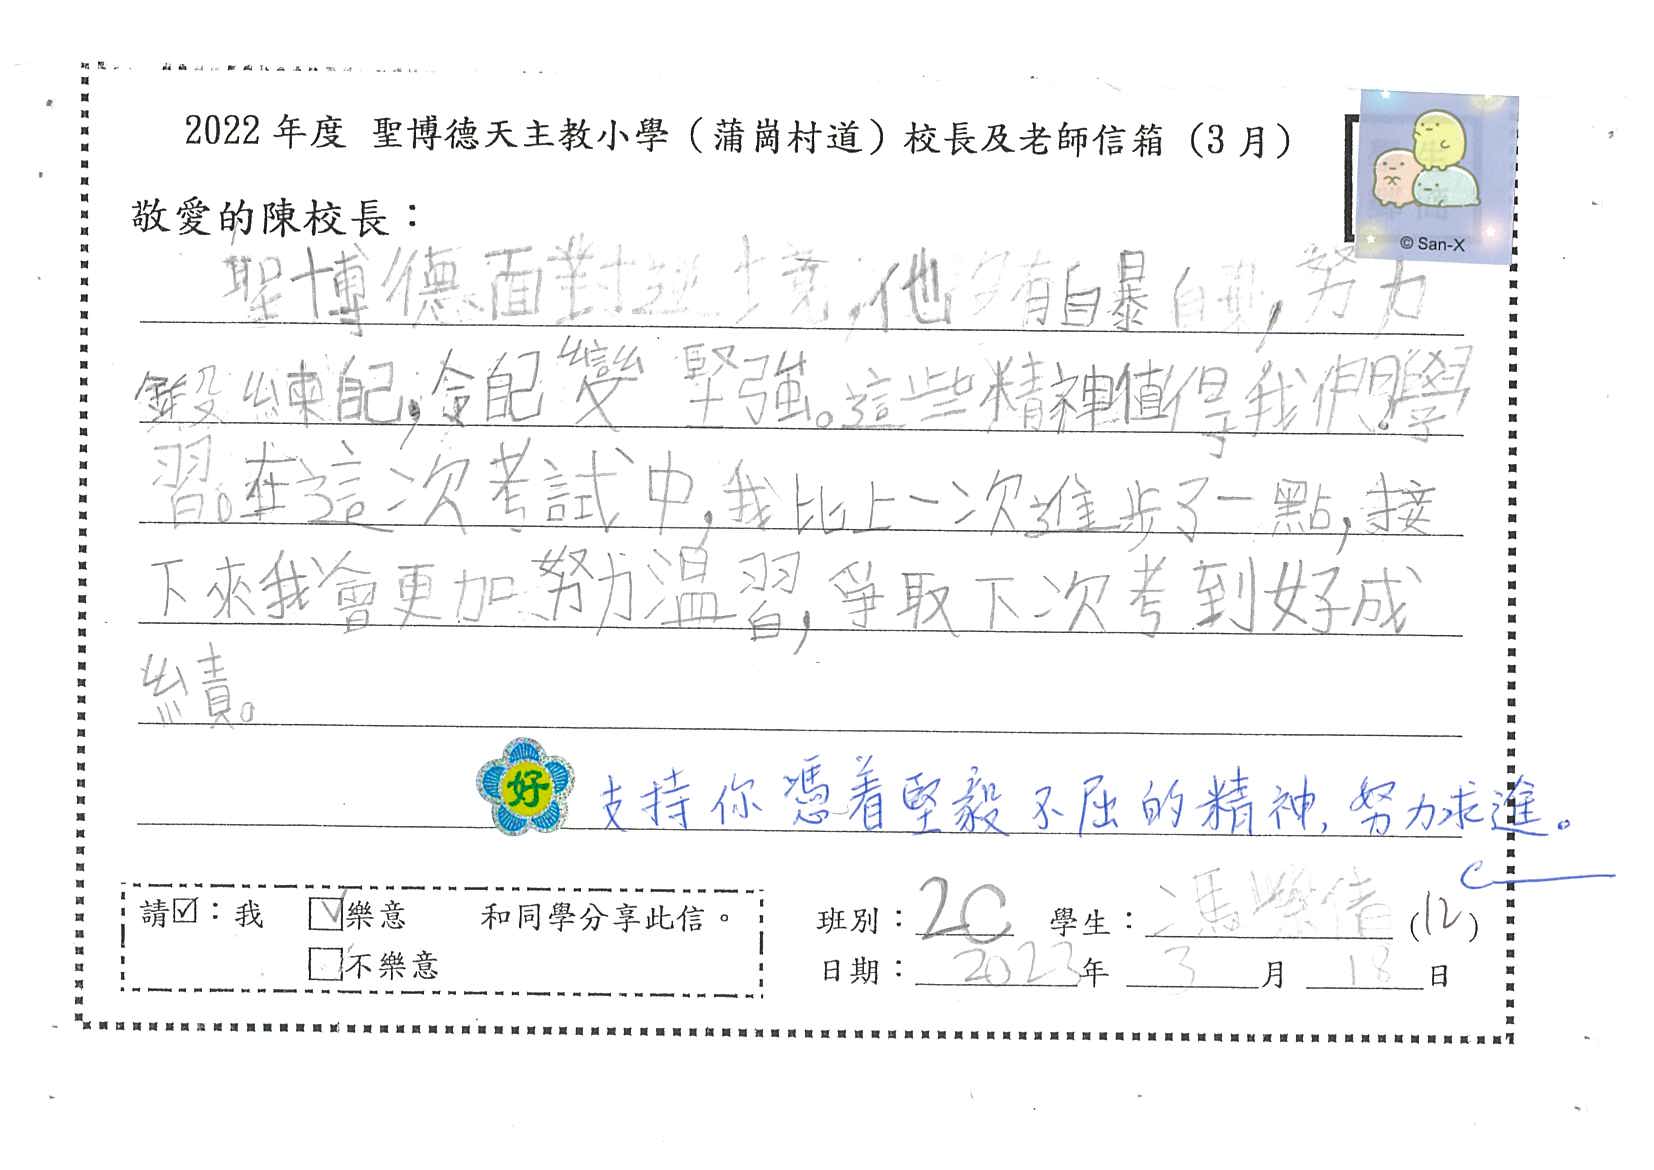 2022 年度 聖博德天主教小學（蒲崗村道）校長及老師信箱（3 月）
© San-X
敬愛的陳校長：
聖博德面對逆境,他沒有自暴自棄,努力
鍛練自己,令自己變堅強。這些精神值得我們學
習。在這次考試中,我比上一次進步了一點,接
下來我會更加努力溫習,爭取下次考到好成
績。
好 支持你憑着堅毅不屈的精神,努力求進。
請☑：我 ☑樂意 和同學分享此信。
☐不樂意
班別：2C 學生：馮樂倩 (12)
日期：2023年 3 月 18 日